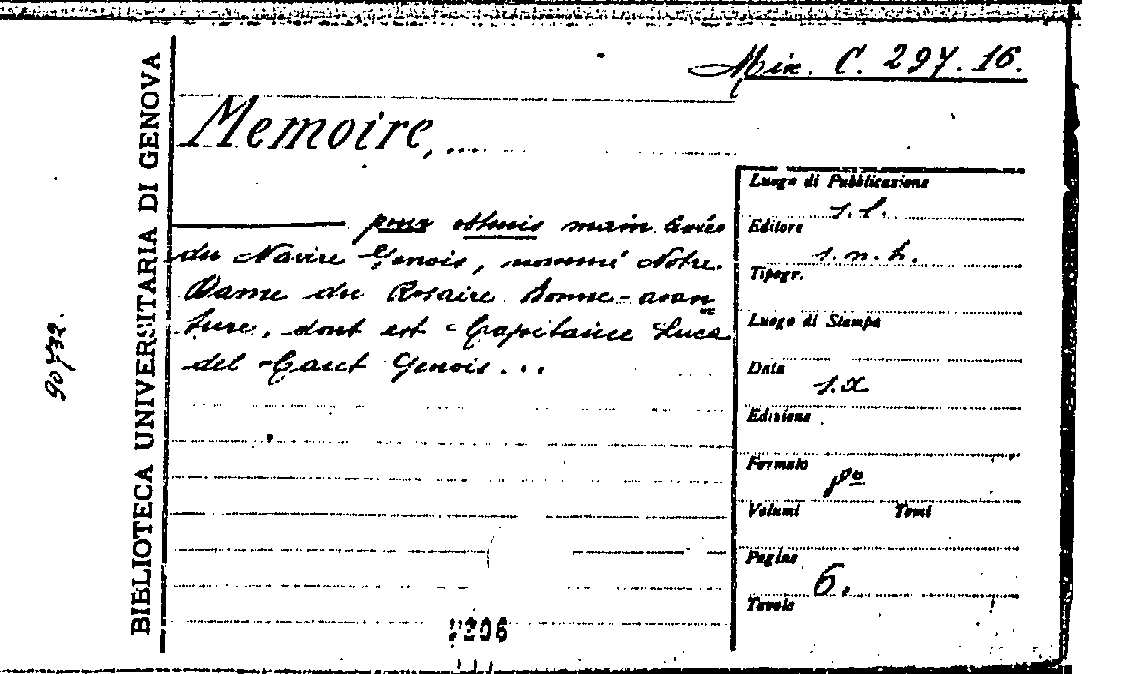 Mis. C. 297. 16.
Memoire, ....
BIBLIOTECA UNIVERSITARIA DI GENOVA
90732.
pour obtenir main levée
du Navire Genois, nommé Notre
Dame du Rosaire Bonne-avan
ture, dont est Capitaine Luca
del Cant Genois...
Luogo di Pubblicazione
s.l.
Editore
s.n.t.
Tipogr.
Luogo di Stampa
Data
s.d.
Edizione
Formato
fº
Volumi Tomi
Pagine
6.
Tavole
206